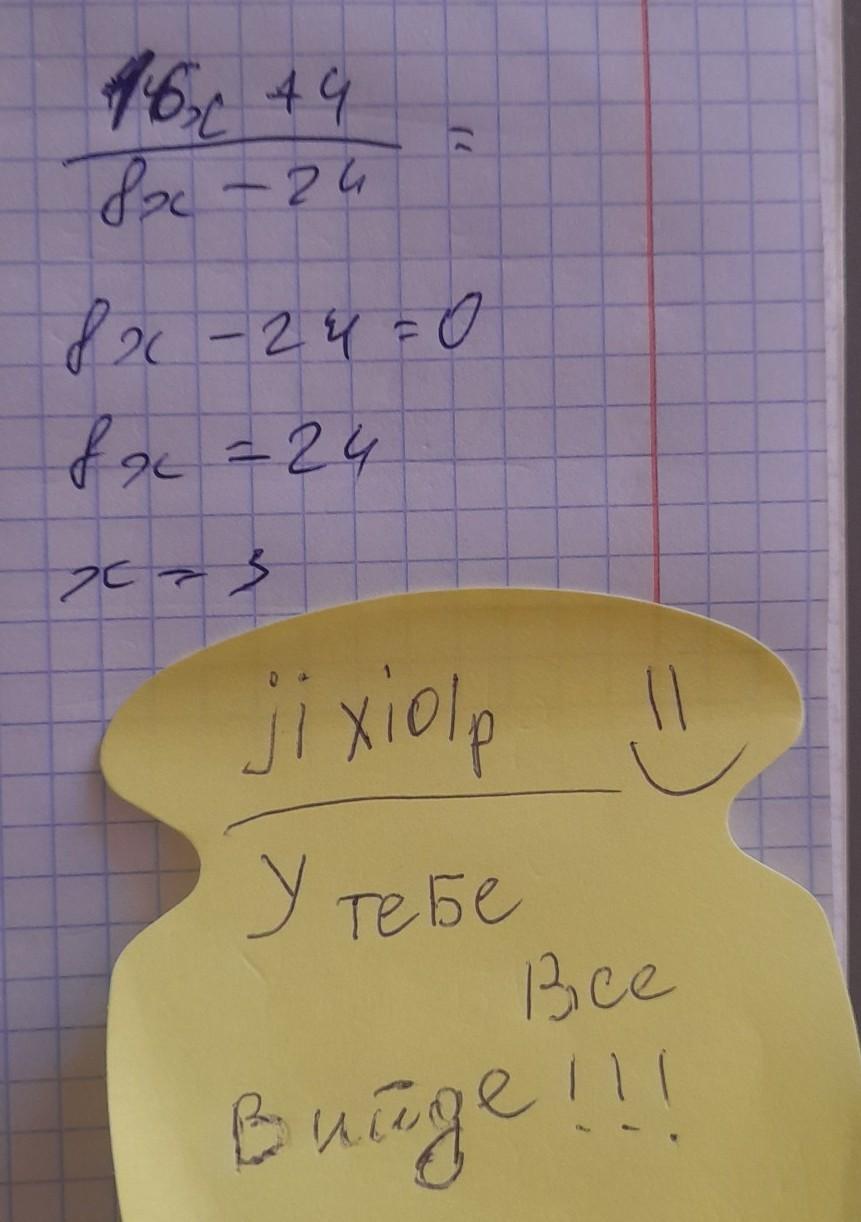 16x + 4
8x - 24 =
8x - 24 = 0
8x = 24
x = 3
jixiolp
У тебе
Все
Вийде!!!